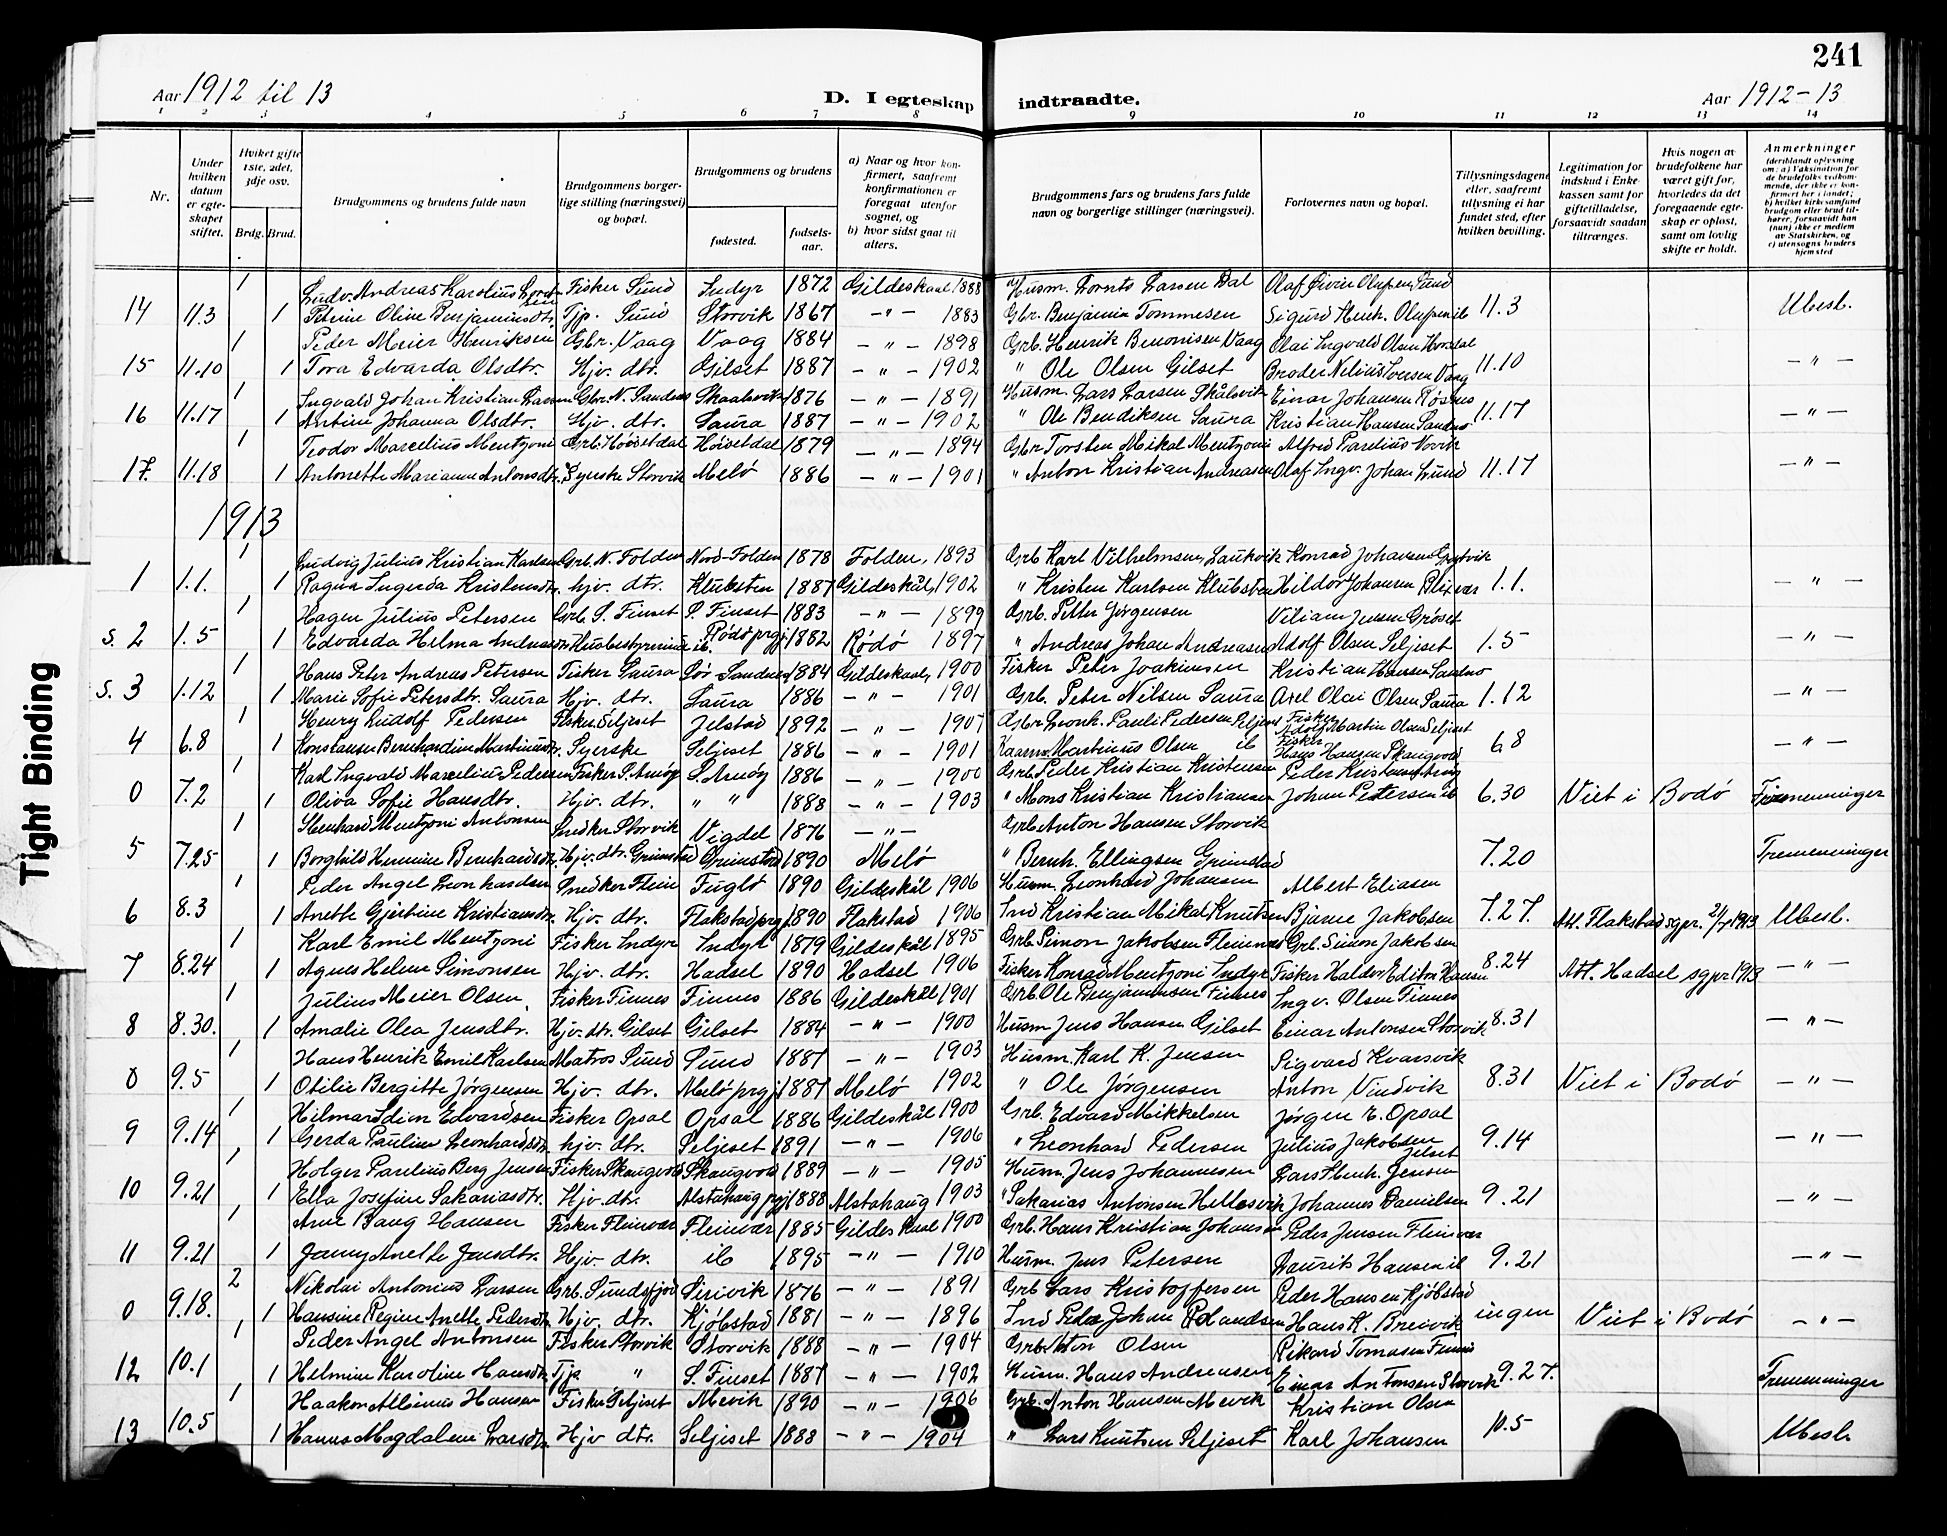 241
Aar 1912 til 13
D. I egteskap indtraadte.
Aar 1912-13
1 2 3 4 5 6 7 8 9 10 11 12 13 14
Nr.
Under hvilken datum er egteskapet stiftet.
Hvilket gifte 1ste, 2det, 3dje osv.
Brdg. Brud.
Brudgommens og brudens fulde navn
Brudgommens borgerlige stilling (næringsvei) og bopæl.
Brudgommens og brudens
fødested.
fødselsaar.
a) Naar og hvor konfirmert, saafremt konfirmationen er foregaat utenfor sognet, og
b) hvor sidst gaat til alters.
Brudgommens fars og brudens fars fulde navn og borgerlige stillinger (næringsvei).
Forlovernes navn og bopæl.
Tillysningsdagene eller, saafremt tillysning ei har fundet sted, efter hvilken bevilling.
Legitimation for indskud i Enkekassen samt for giftetilladelse, forsaavidt saadan tiltrænges.
Hvis nogen av brudefolkene har været gift før, hvorledes da det foregaaende egteskap er opløst, samt om lovlig skifte er holdt.
Anmerkninger (deriblandt oplysning om: a) Vaksination for de brudefolks vedkommende, der ikke er konfirmert her i landet; b) hvilket kirkesamfund brudgom eller brud tilhører, forsaavidt han (hun) ikke er medlem av Statskirken, og c) utensogns bruders hjemsted
1 Ludv. Andreas Karolius Lorntsen Fisker Sund Indyr 1872 Gildeskaal 1888 Husm. Lornts Larsen Dal Olaf Eivin Olufsen Sund
14 11.3 1 Petrine Oline Benjaminsdtr. Tjp. Sund Storvik 1867 - " - 1883 Gbr. Benjamin Tommesen Sigurd Henh. Olufsen ib 11.3 Ubesl.
1 Peder Meier Henriksen Gbr. Vaag Vaag 1884 - " - 1898 Grb. Henrik Benonisen Vaag Olai Ingvald Olsen Horsdal
15 11.10 1 Tora Edvarda Olsdtr. Hjv. dtr. Gilset 1887 - " - 1902 " Ole Olsen Gilset Broder Nelius Iversen Vaag 11.10 - " -
1 Ingvald Johan Kristian Larsen Gbr. N. Sandnes Skaalsvik 1876 - " - 1891 Husm. Lars Larsen Skålsvik Einar Johansen Røsnes
16 11.17 1 Antine Johanna Olsdtr. Hjv. dtr. Saura 1887 - " - 1902 " Ole Bendiksen Saura Kristian Hansen Sandnes 11.17 - " -
1 Teodor Marcelius Mentzoni Grb. Høisetdal Høisetdal 1879 - " - 1894 Gbr Torsten Mikal Mentzoni Alfred Parelius Norvik
17. 11.18 1 Antonette Marianne Antonsdtr. Syerske Storvik Melø 1886 - " - 1901 " Anton Kristian Andreasen Olaf Ingv. Johan Lund 11.17 - " -
1913
1 Ludvig Julius Kristian Karlsen Grb. N. Folden Nord-Folden 1878 Folden, 1893 Grb Karl Vilhelmsen, Laukvik Konrad Johansen
1 1.1. 1 Ragna Ingerda Kristensdtr. hjv. dtr. Klubsten 1887 Gildeskål, 1902 " Kristen Karlsen Klubsten Hildor Johansen Blixvær 1.1. - " -
1 Hagen Julius Petersen Grb. S. Finset S. Finset 1883 - " - 1899 Grb. Petter Jørgensen Viliam Jensen Grøset
s. 2 1.5 1 Edvarda Helma Andreasdtr. Husbestyrerinde ib. Rødø prgj. 1882 Rødø 1897 " Andreas Johan Andreasen Adolf Olsen Seljeset 1.5 - " -
1 Hans Peter Andreas Petersen Fisker Saura Sør Sandnes 1884 Gildeskaal, 1900 Fisker Peter Joakimsen Kristian Hansen Sandnes
s. 3 1.12 1 Marie Sofie Petersdtr. Saura Hjv. dtr. Saura 1886 - " - 1901 Grb. Peter Nilsen Saura Axel Olai Olsen Saura 1.12 - " -
1 Henry Ludolf Pedersen Fisker Seljeset Jelstad 1892 - " - 1907 Gbr Leonh. Pauli Pedersen Fisker Adolf Martin Olsen Seljeset
4 6.8 1 Konstanse Bernhardine Martinusdtr. Syerske Seljeset 1886 - " - 1901 Martinus Olsen ib Fisker Hans Hansen Skaugvold 6.8 - " -
1 Karl Ingvald Marcelius Pedersen Fisker S. Arnøy S. Arnøy 1886 - " - 1900 Grb. Peder Kristian Kristensen Peder Kristensen Arnøy
0 7.2 1 Oliva Sofie Hansdtr. Hjv. dtr. " " 1888 - " - 1903 " Mons Kristian Kristiansen Johan Petersen ib 6.30 Viet i Bodø Firemenninger
1 Stenhard Mentzoni Antonsen Snedker Storvik Vigdel 1876 - " - Grb Anton Hansen Storvik
5 7.25 1 Borghild Hermine Bernhardsdtr. Hjv. dtr. Grimstad Grimstad 1890 Melø " Bernh. Ellingsen Grimstad 7.20 Tremenninger
1 Peder Angel Leonhardsen Snedker Fleine Fuglø 1890 Gildeskål 1906 Husm. Leonhard Johansen Albert Eliasen
6 8.3 1 Anette Gjertine Kristiansdtr. Hjv. dtr. Flakstad prgj. 1890 Flakstad 1906 Ind Kristian Mikal Knutsen Bjarne Jakobsen 7.27. Att. Flakstad sgpr. 21/7 1913 Ubesl.
1 Karl Emil Mentzoni Fisker Indyr Indyr 1879 Gildeskål 1895 Grb. Simon Jakobsen Fleinnes Grb. Simon Jakobsen
7 8.24 1 Agnes Helene Simonsen Hjv. dtr. Hadsel 1890 Hadsel 1906 Fisker Konrad Mentzoni Indyr Fisker Haldor Editon Hansen 8.24 Att. Hadsel sgpr 1913 - " -
1 Julius Meier Olsen, Fisker Finnes Finnes 1886 Gildeskål 1901 Grb. Ole Benjaminsen Finnes Ingv. Olsen Finnes
8 8.30. 1 Amalie Olea Jensdtr. Hjv. dtr. Gilset Gilset 1884 - " - 1900 Husm Jens Hansen Gilset Einar Antonsen Storvik 8.31 - " -
1 Hans Henrik Emil Karlsen Matros Sund Sund 1887 - " - 1903 Husm. Karl K. Jensen Sigvard Kvarsvik
0 9.5 1 Otilie Bergitte Jørgensen Hjv. dtr. Melø prgj 1887 Melø 1902 " Ole Jørgensen Anton Vindvik 8.31 Viet i Bodø - " -
1 Hilmar Idion Edvardsen Fisker Opsal Opsal 1886 Gildeskål 1900 Grb. Edvard Mikkelsen Jørgen E. Opsal
9 9.14 1 Gerda Pauline Leonhardsdtr. hjv. dtr. Seljeset 1891 - " - 1906 " Leonhard Pedersen Julius Jakobsen Jelset 9.14 - " -
1 Holger Parelius Berg Jensen Fisker Skaugvold Skaugvold 1889 - " - 1905 Husm. Jens Johannesen Lars Stenh. Jensen
10 9.21 1 Ella Josefine Sakariasdtr. Hjv. dtr. Alstahaug prgj 1888 Alstahaug 1903 " Sakarias Antonsen Hellesvik Johannes Danielsen 9.21 - " -
1 Arne Bang Hansen Fisker Fleinvær Fleinvær 1885 Gildeskaal 1900 Grb. Hans Kristian Johansen Peder Jensen Fleinvær
11 9.21 1 Jenny Anette Jensdtr. Hjv. dtr. ib 1895 - " - 1910 Husm. Jens Petersen Laurits Hansen ib 9.21 - " -
2 Nikolai Antonius Larsen Grb. Sundsfjord Sirivik 1876 - " - 1891 Grb Lars Kristoffersen Peder Hansen Kjøbstad
0 9.18. 1 Hansine Regine Anette Pedersdtr. Hjv. dtr. Kjøbstad 1881 - " - 1896 Ind Peder Johan Rolandsen Hans K. Breivik ingen Viet i Bodø - " -
1 Peder Angel Antonsen Fisker Storvik Storvik 1888 - " - 1904 Grb. Anton Olsen Rikard Tomasen Finnes
12 10.1 1 Helmine Karoline Hansdtr. Tjp. " S. Finset 1887 - " - 1902 Husm. Hans Andreasen Einar Antonsen Storvik 9.27. Tremenninger
1 Haakon Albinus Hansen Fisker Seljeset Mevik 1890 - " - 1906 Grb. Anton Hansen Mevik Kristian Olsen
13 10.5 1 Hanna Magdalene Larsdtr. Hjv dtr. Seljeset 1888 - " - 1904 " Lars Knutsen Seljeset Karl Johansen 10.5 Ubesl.
Tight Binding